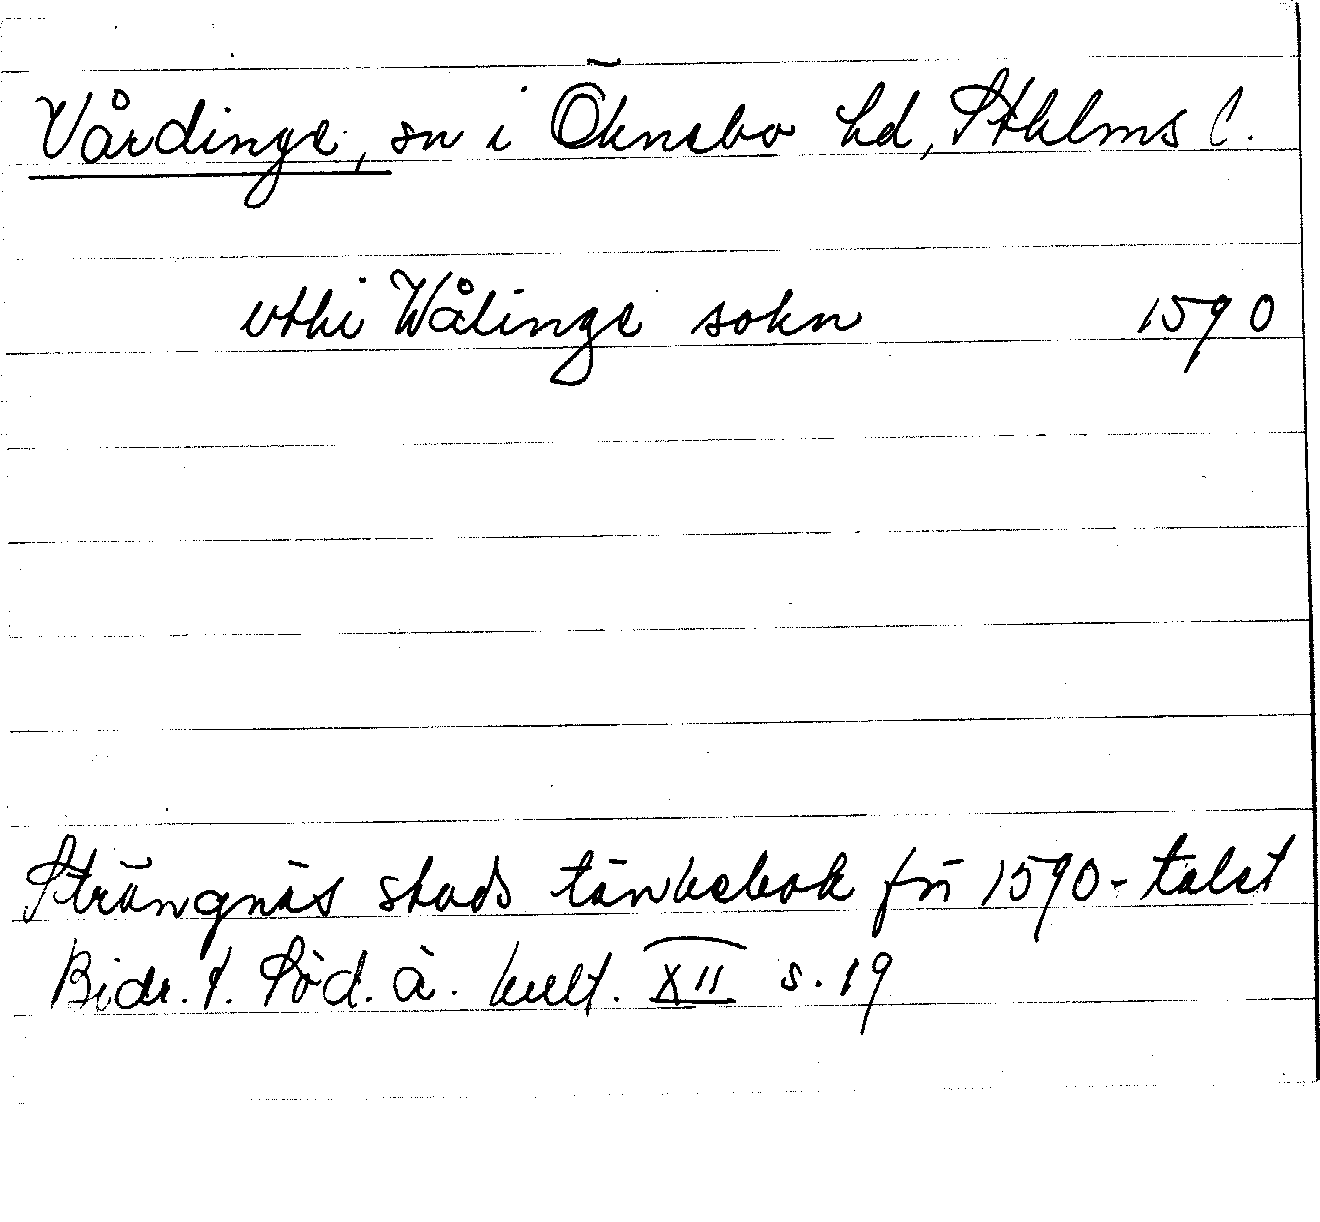 Vårdinge, sn i Öknebo hd, Sthlms l.
vthi Wålinge sokn 1590
Strängnäs stads tänkebok för 1590-talet
Bidr. t. Söd. ä. kult. XII s. 19